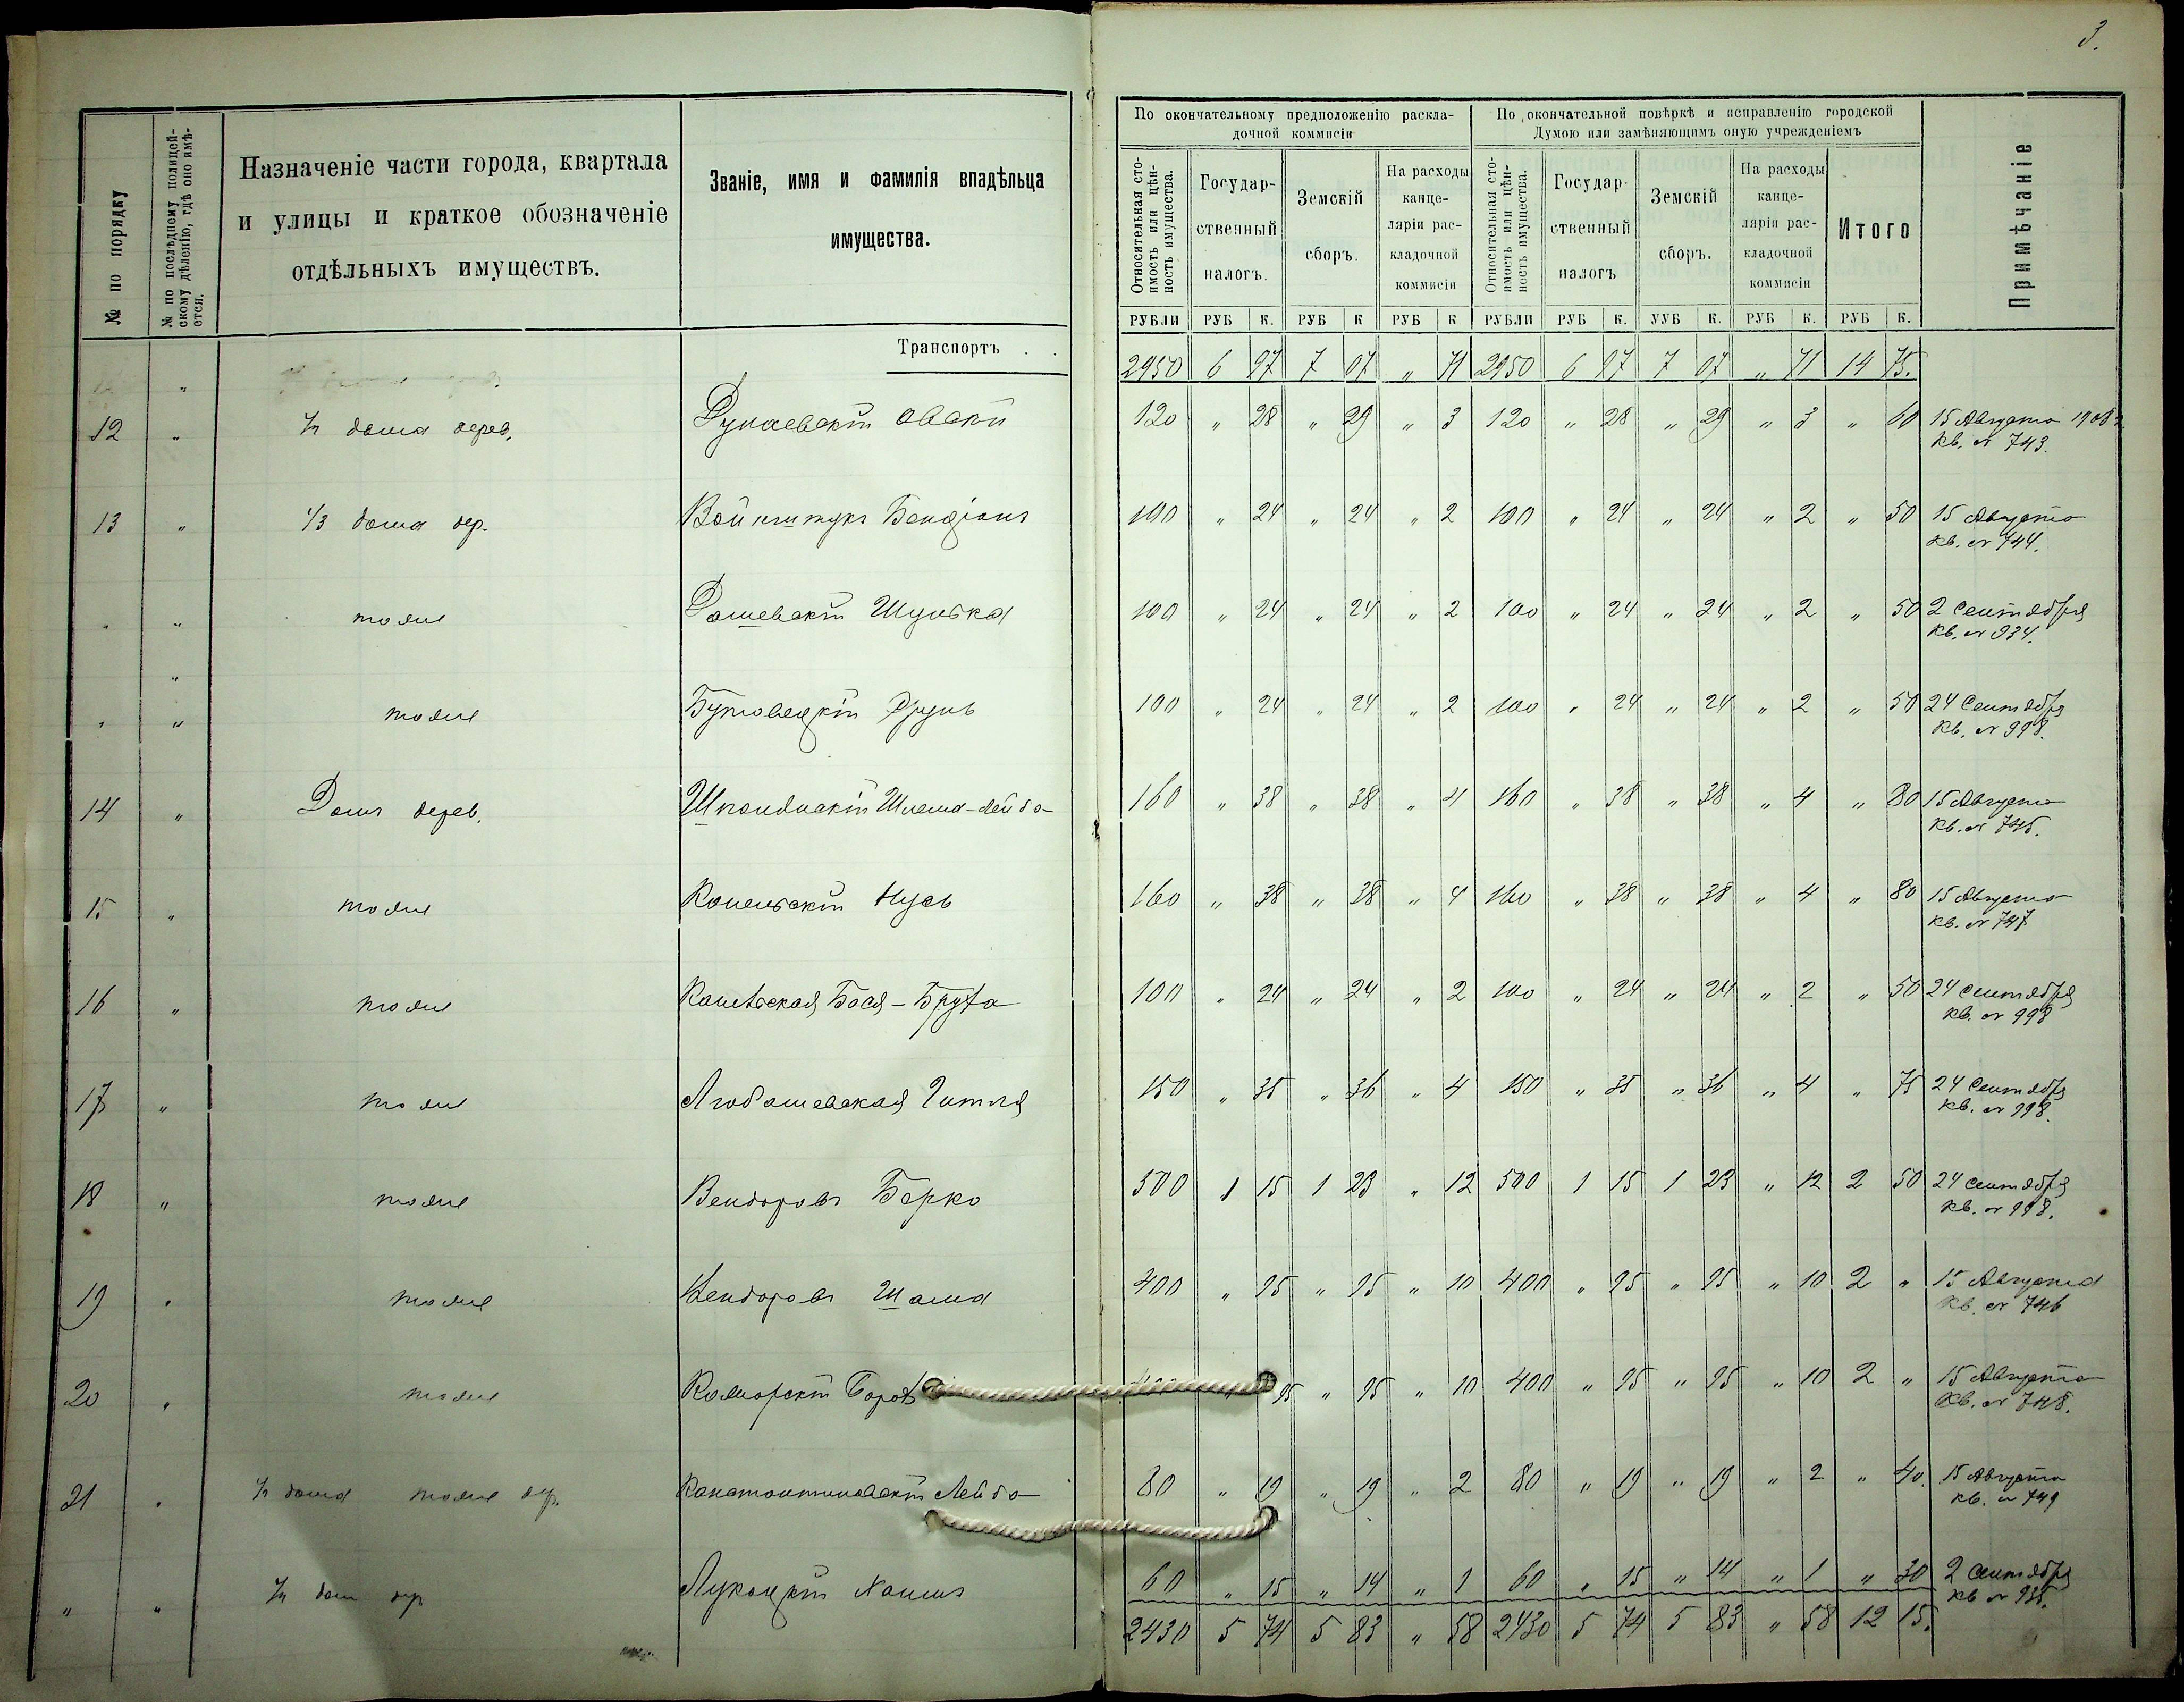 3.
№ по порядку
№ по послѣднему полицей-
скому дѣленію, гдѣ оно имѣ-
ется.
Назначеніе части города, квартала
и улицы и краткое обозначеніе
отдѣльныхъ имуществъ.
Званіе, имя и фамилія владѣльца
имущества.
По окончательному предположенію раскла-
дочной коммисіи
По окончательной повѣркѣ и исправленію городской
Думою или замѣняющимъ оную учрежденіемъ
Относительная сто-
имость или цѣн-
ность имущества.
Государ-
ственный
налогъ.
Земскій
сборъ.
На расходы
канце-
ляріи рас-
кладочной
коммисіи
Относительная сто-
имость или цѣн-
ность имущества.
Государ-
ственный
налогъ
Земскій
сборъ.
На расходы
канце-
ляріи рас-
кладочной
коммисіи
Итого
Примѣчаніе
РУБЛИ РУБ К. РУБ К РУБ К РУБЛИ РУБ К. УУБ К. РУБ К. РУБ К.
Транспортъ . .
2950 6 97 7 07 " 71 2950 6 97 7 07 " 71 14 75.
12 " ½ дома дерев. Дунаевскій 120 " 28 " 29 " 3 120 " 28 " 29 " 3 " 60 15 Августа 1908 г.
кв. № 743.
13 " 1/3 дома дер. 100 " 24 " 24 " 2 100 " 24 " 24 " 2 " 50 15 Августа
кв. № 744.
" " тоже Дашевскій Шулька 100 " 24 " 24 " 2 100 " 24 " 24 " 2 " 50 2 Сентября
кв. № 934.
" " тоже 100 " 24 " 24 " 2 100 " 24 " 24 " 2 " 50 24 Сентября
кв. № 998.
14 " Домъ дерев. Шполянскій Шлема-Лейба 160 " 38 " 38 " 4 160 " 38 " 38 " 4 " 80 15 Августа
кв. № 745.
15 " тоже Коневскій Нусь 160 " 38 " 38 " 4 160 " 38 " 38 " 4 " 80 15 Августа
кв. № 747
16 " тоже Бася-Бруха 100 " 24 " 24 " 2 100 " 24 " 24 " 2 " 50 24 Сентября
кв. № 998
17 " тоже Любашевская Гитля 150 " 35 " 36 " 4 150 " 35 " 36 " 4 " 75 24 Сентября
кв. № 998.
18 " тоже Вендоровъ Берко 500 1 15 1 23 " 12 500 1 15 1 23 " 12 2 50 24 Сентября
кв. № 998.
19 " тоже Вендоровъ Шама 400 " 95 " 95 " 10 400 " 95 " 95 " 10 2 " 15 Августа
кв. № 746
20 " тоже 95 " 95 " 10 400 " 95 " 95 " 10 2 " 15 Августа
кв. № 748.
21 " ½ дома тоже дер. Константиновскій Лейба 80 " 19 " 19 " 2 80 " 19 " 19 " 2 " 40. 15 Августа
кв. № 749
" " ½ дом дер Лукацкій Хаимъ 60 " 15 " 14 " 1 60 " 15 " 14 " 1 " 30 2 Сентября
кв № 935.
2430 5 74 5 83 " 58 2430 5 74 5 83 " 58 12 15.